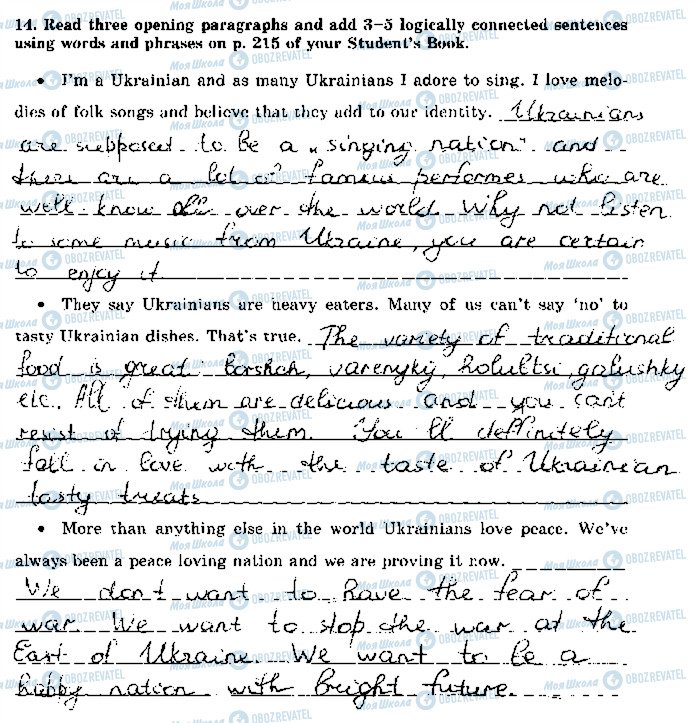 14. Read three opening paragraphs and add 3–5 logically connected sentences
using words and phrases on p. 215 of your Student's Book.
• I'm a Ukrainian and as many Ukrainians I adore to sing. I love melo-
dies of folk songs and believe that they add to our identity. Ukrainians
are supposed to be a „singing nation" and
there are a lot of famous performes who are
well know all over the world. Why not listen
to some music from Ukraine, you are certain
to enjoy it
• They say Ukrainians are heavy eaters. Many of us can't say 'no' to
tasty Ukrainian dishes. That's true. The variety of traditional
food is great: borshch, varenyky, holubtsi, galushky
etc. All of them are delicious and you can't
resist of trying them. You'll deffinetely
fall in love with the taste of Ukrainian
tasty treats
• More than anything else in the world Ukrainians love peace. We've
always been a peace loving nation and we are proving it now.
We don't want to have the fear of
war. We want to stop the war at the
East of Ukraine. We want to be a
happy nation with bright future.